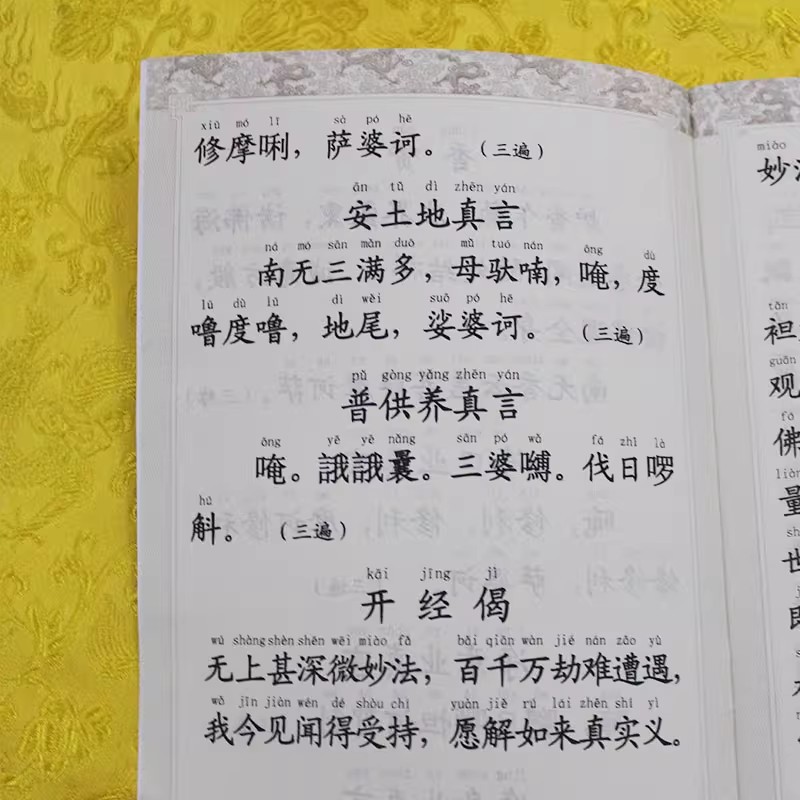 xiū mó lī sà pó hē
修摩唎，萨婆诃。（三遍）
ān tǔ dì zhēn yán
安土地真言
ná mó sān mǎn duō mǔ tuó nán ōng dù
南无三满多，母驮喃，唵，度
lū dù lū dì wěi suō pó hē
噜度噜，地尾，娑婆诃。（三遍）
pǔ gòng yǎng zhēn yán
普供养真言
ōng yě yě nǎng sān pó wǎ fá zhī là
唵。誐誐曩。三婆嚩。伐日啰
hú
斛。（三遍）
kāi jīng jì
开经偈
wú shàng shèn shēn wēi miào fǎ bǎi qiān wàn jié nán zāo yù
无上甚深微妙法，百千万劫难遭遇，
wǒ jīn jiàn wén dé shòu chí yuàn jiě rú lái zhēn shí yì
我今见闻得受持，愿解如来真实义。
miào
妙
tǎn
袒
guān
观
佛
量
世
即